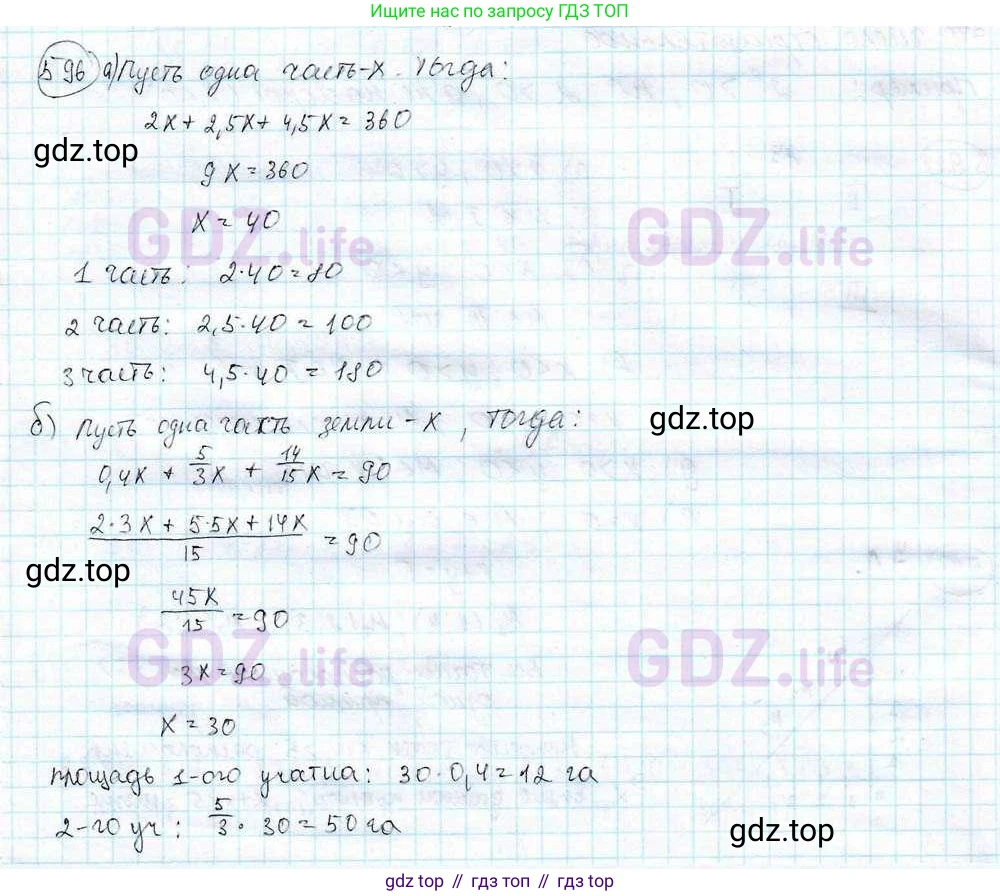 Ищите нас по запросу ГДЗ ТОП
596 а) Пусть одна часть-х. Тогда:
2х + 2,5х + 4,5х = 360
gdz.top
9х = 360
х = 40
GDZ.life GDZ.life
1 часть: 2·40=80
2 часть: 2,5·40=100
3 часть: 4,5·40=180
б) Пусть одна часть земли-х, тогда:
gdz.top
0,4х + 5/3х + 14/15х = 90
2·3х + 5·5х + 14х / 15 = 90
gdz.top
45х/15 = 90
GDZ.life GDZ.life
3х=90
х = 30
площадь 1-ого участка: 30·0,4=12 га
2-го уч: 5/3·30=50га
gdz.top
gdz.top // гдз топ // gdz.top